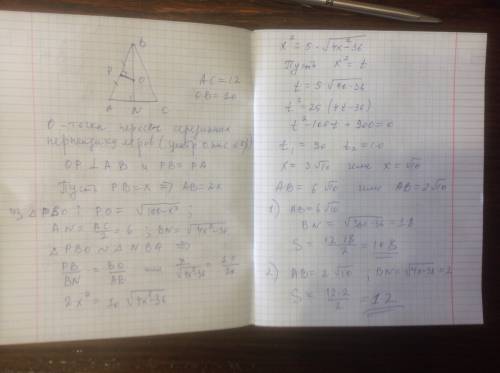 B
P
O
A N C
AC = 12
OB = 20
O - точка пересеч. серединных
OP ⊥ AB и PB = PA
Пусть PB = x ⇒ AB = 2x
из △PBO : PO = √(100-x²) ;
AN = BC/2 = 6 ; BN = √(4x²-36)
△PBO ~ △NBA ⇒
PB/BN = BO/AB или
2x² = 10 √(4x²-36)
x² = 5 · √(4x²-36)
Пусть x² = t
t = 5 √(4t-36)
t² = 25 (4t-36)
t² - 100t + 900 = 0
t₁ = 90 t₂ = 10
x = 3√10 или x = √10
AB = 6√10 или AB = 2√10
1) AB = 6√10
BN = √(360-36) = 18
S = 12·18/2 = 108
2) AB = 2√10 ; BN = √(40-36) = 2
S = 12·2/2 = 12